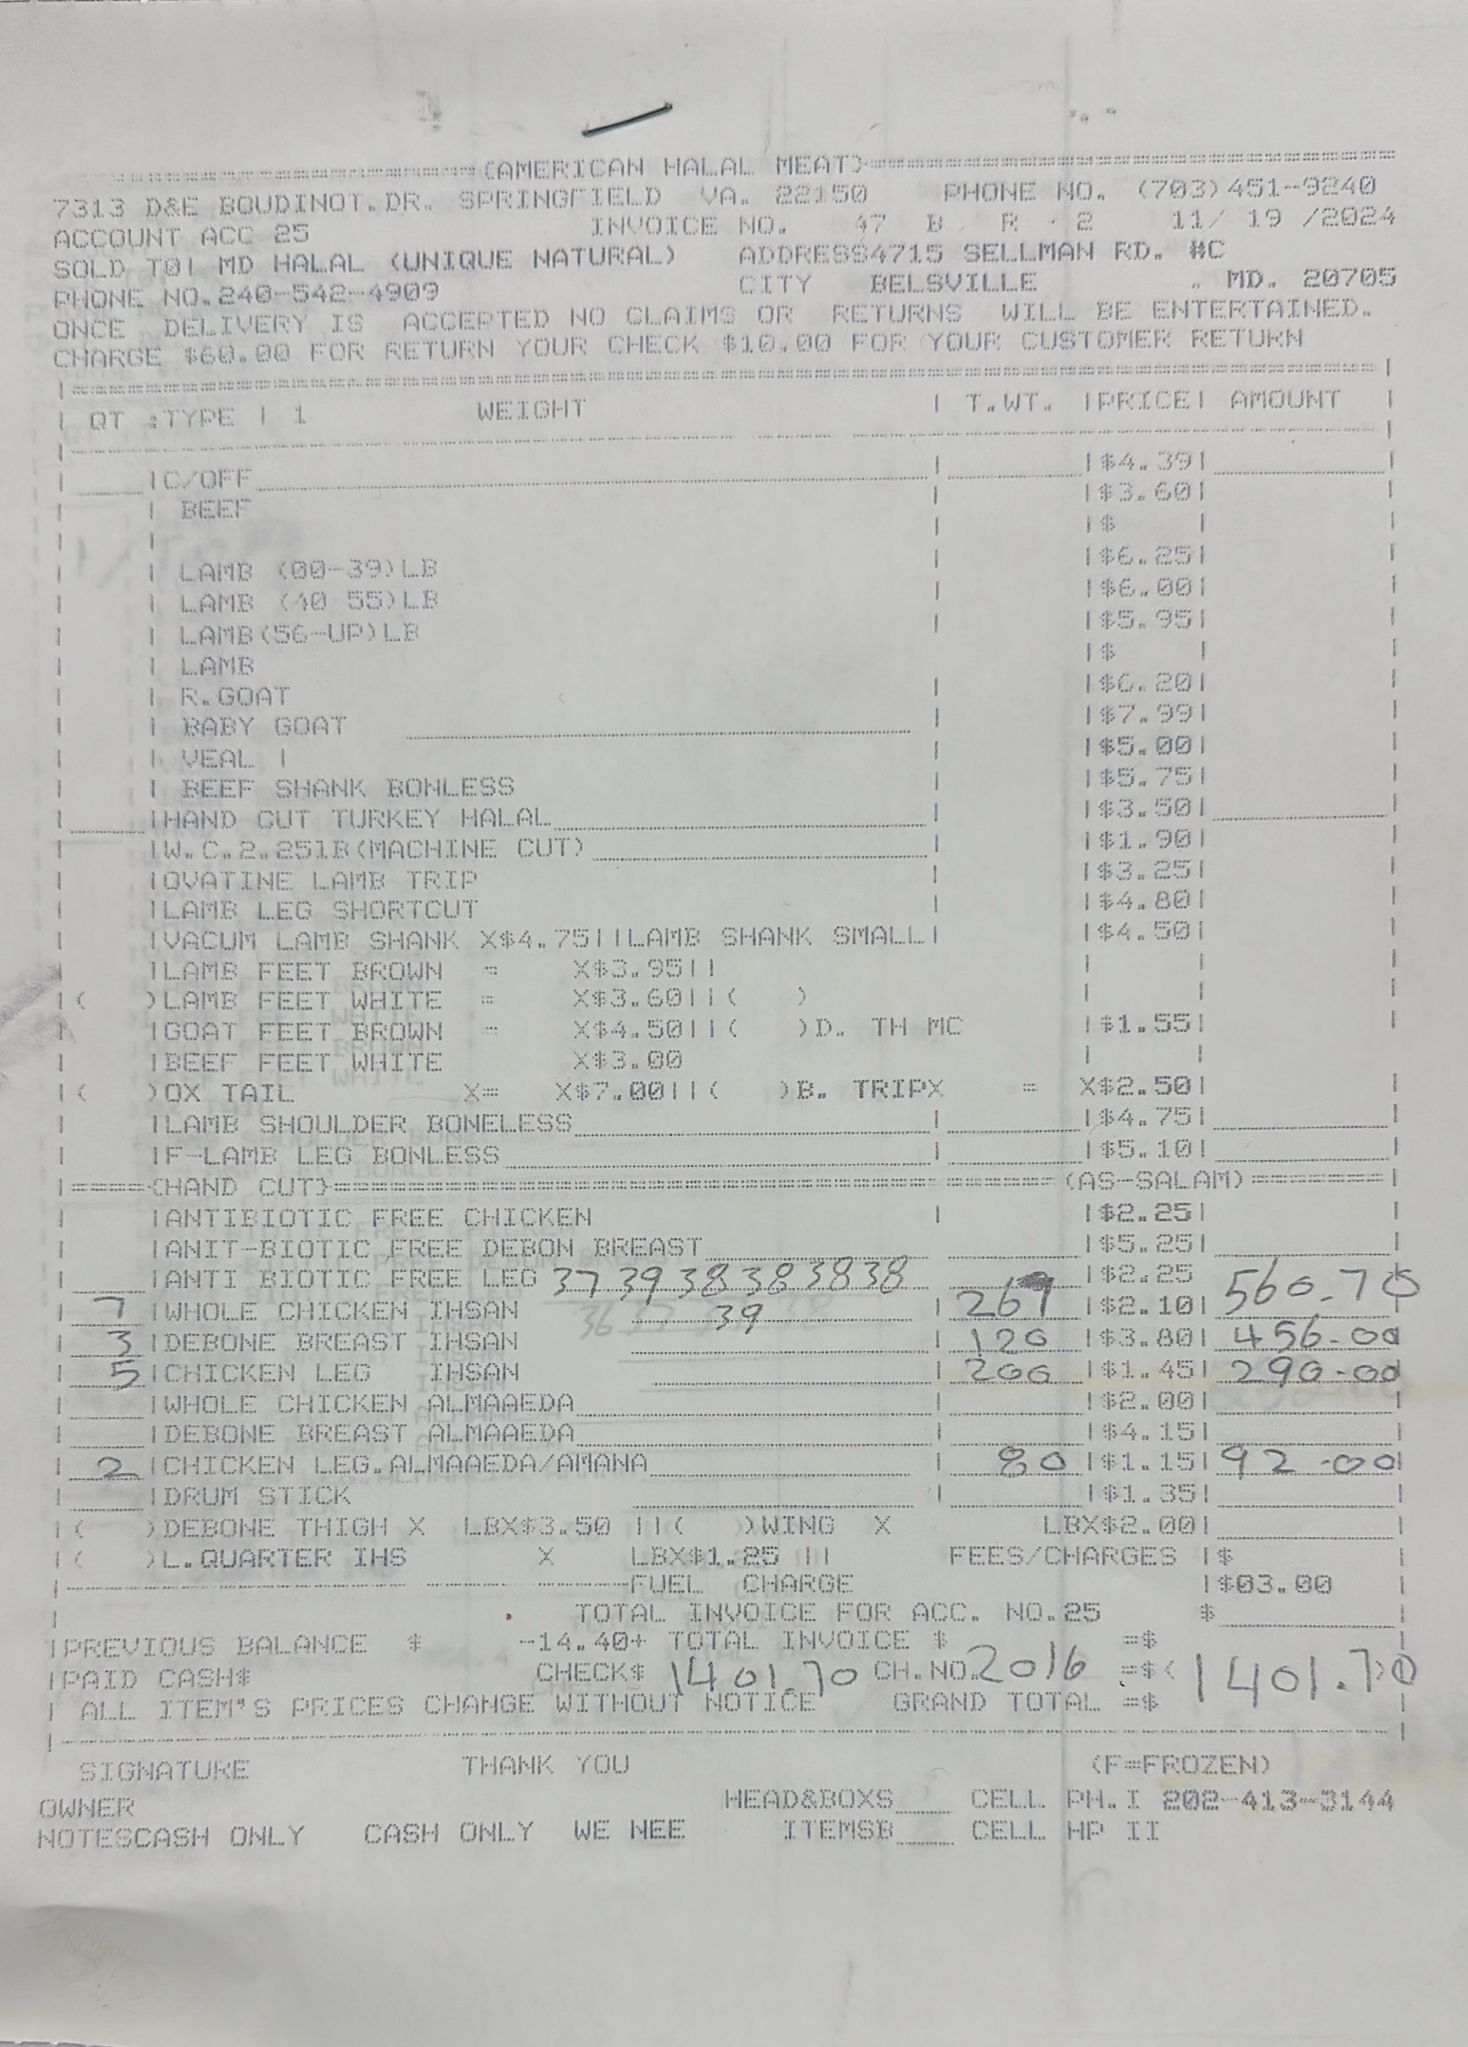 =====================(AMERICAN HALAL MEAT)=====================
7313 D&E BOUDINOT.DR. SPRINGFIELD VA. 22150 PHONE NO. (703)451-9240
ACCOUNT ACC 25 INVOICE NO. 47 B R - 2 11/ 19 /2024
SOLD TO| MD HALAL (UNIQUE NATURAL) ADDRESS4715 SELLMAN RD. #C
PHONE NO.240-542-4909 CITY BELSVILLE . MD. 20705
ONCE DELIVERY IS ACCEPTED NO CLAIMS OR RETURNS WILL BE ENTERTAINED.
CHARGE $60.00 FOR RETURN YOUR CHECK $10.00 FOR YOUR CUSTOMER RETURN
| QT :TYPE | 1 WEIGHT | T.WT. |PRICE| AMOUNT |
|C/OFF | |$4.39|
| BEEF |$3.60|
|$ |
| LAMB (00-39)LB |$6.25|
| LAMB (40 55)LB |$6.00|
| LAMB(56-UP)LB |$5.95|
| LAMB |$ |
| R.GOAT |$6.20|
| BABY GOAT |$7.99|
| VEAL | |$5.00|
| BEEF SHANK BONLESS |$5.75|
|HAND CUT TURKEY HALAL |$3.50|
|W.C.2.25lB(MACHINE CUT) |$1.90|
|OVATINE LAMB TRIP |$3.25|
|LAMB LEG SHORTCUT |$4.80|
|VACUM LAMB SHANK X$4.75||LAMB SHANK SMALL| |$4.50|
|LAMB FEET BROWN = X$3.95||
|( )LAMB FEET WHITE = X$3.60||( )
|GOAT FEET BROWN = X$4.50||( )D. TH MC |$1.55|
|BEEF FEET WHITE X$3.00
|( )OX TAIL X= X$7.00||( )B. TRIPX = X$2.50|
|LAMB SHOULDER BONELESS |$4.75|
|F-LAMB LEG BONLESS |$5.10|
|=====(HAND CUT)=====(AS-SALAM)=======|
|ANTIBIOTIC FREE CHICKEN |$2.25|
|ANIT-BIOTIC FREE DEBON BREAST |$5.25|
|ANTI BIOTIC FREE LEG 37 39 38 38 38 38 |$2.25
7 |WHOLE CHICKEN IHSAN 39 | 267 |$2.10| 560.70
3 |DEBONE BREAST IHSAN | 120 |$3.80| 456.00
5 |CHICKEN LEG IHSAN | 200 |$1.45| 290.00
|WHOLE CHICKEN ALMAAEDA |$2.00|
|DEBONE BREAST ALMAAEDA |$4.15|
2 |CHICKEN LEG.ALMAAEDA/AMANA | 80 |$1.15| 92.00
|DRUM STICK |$1.35|
|( )DEBONE THIGH X LBX$3.50 ||( )WING X LBX$2.00|
|( )L.QUARTER IHS X LBX$1.25 || FEES/CHARGES |$
FUEL CHARGE |$03.00
TOTAL INVOICE FOR ACC. NO.25 $
|PREVIOUS BALANCE $ -14.40+ TOTAL INVOICE $ =$
|PAID CASH$ CHECK$ 1401.70 CH.NO. 2016 =$( 1401.70 )
| ALL ITEM'S PRICES CHANGE WITHOUT NOTICE GRAND TOTAL =$
SIGNATURE THANK YOU (F=FROZEN)
OWNER HEAD&BOXS CELL PH.I 202-413-3144
NOTESCASH ONLY CASH ONLY WE NEE ITEMSB CELL HP II